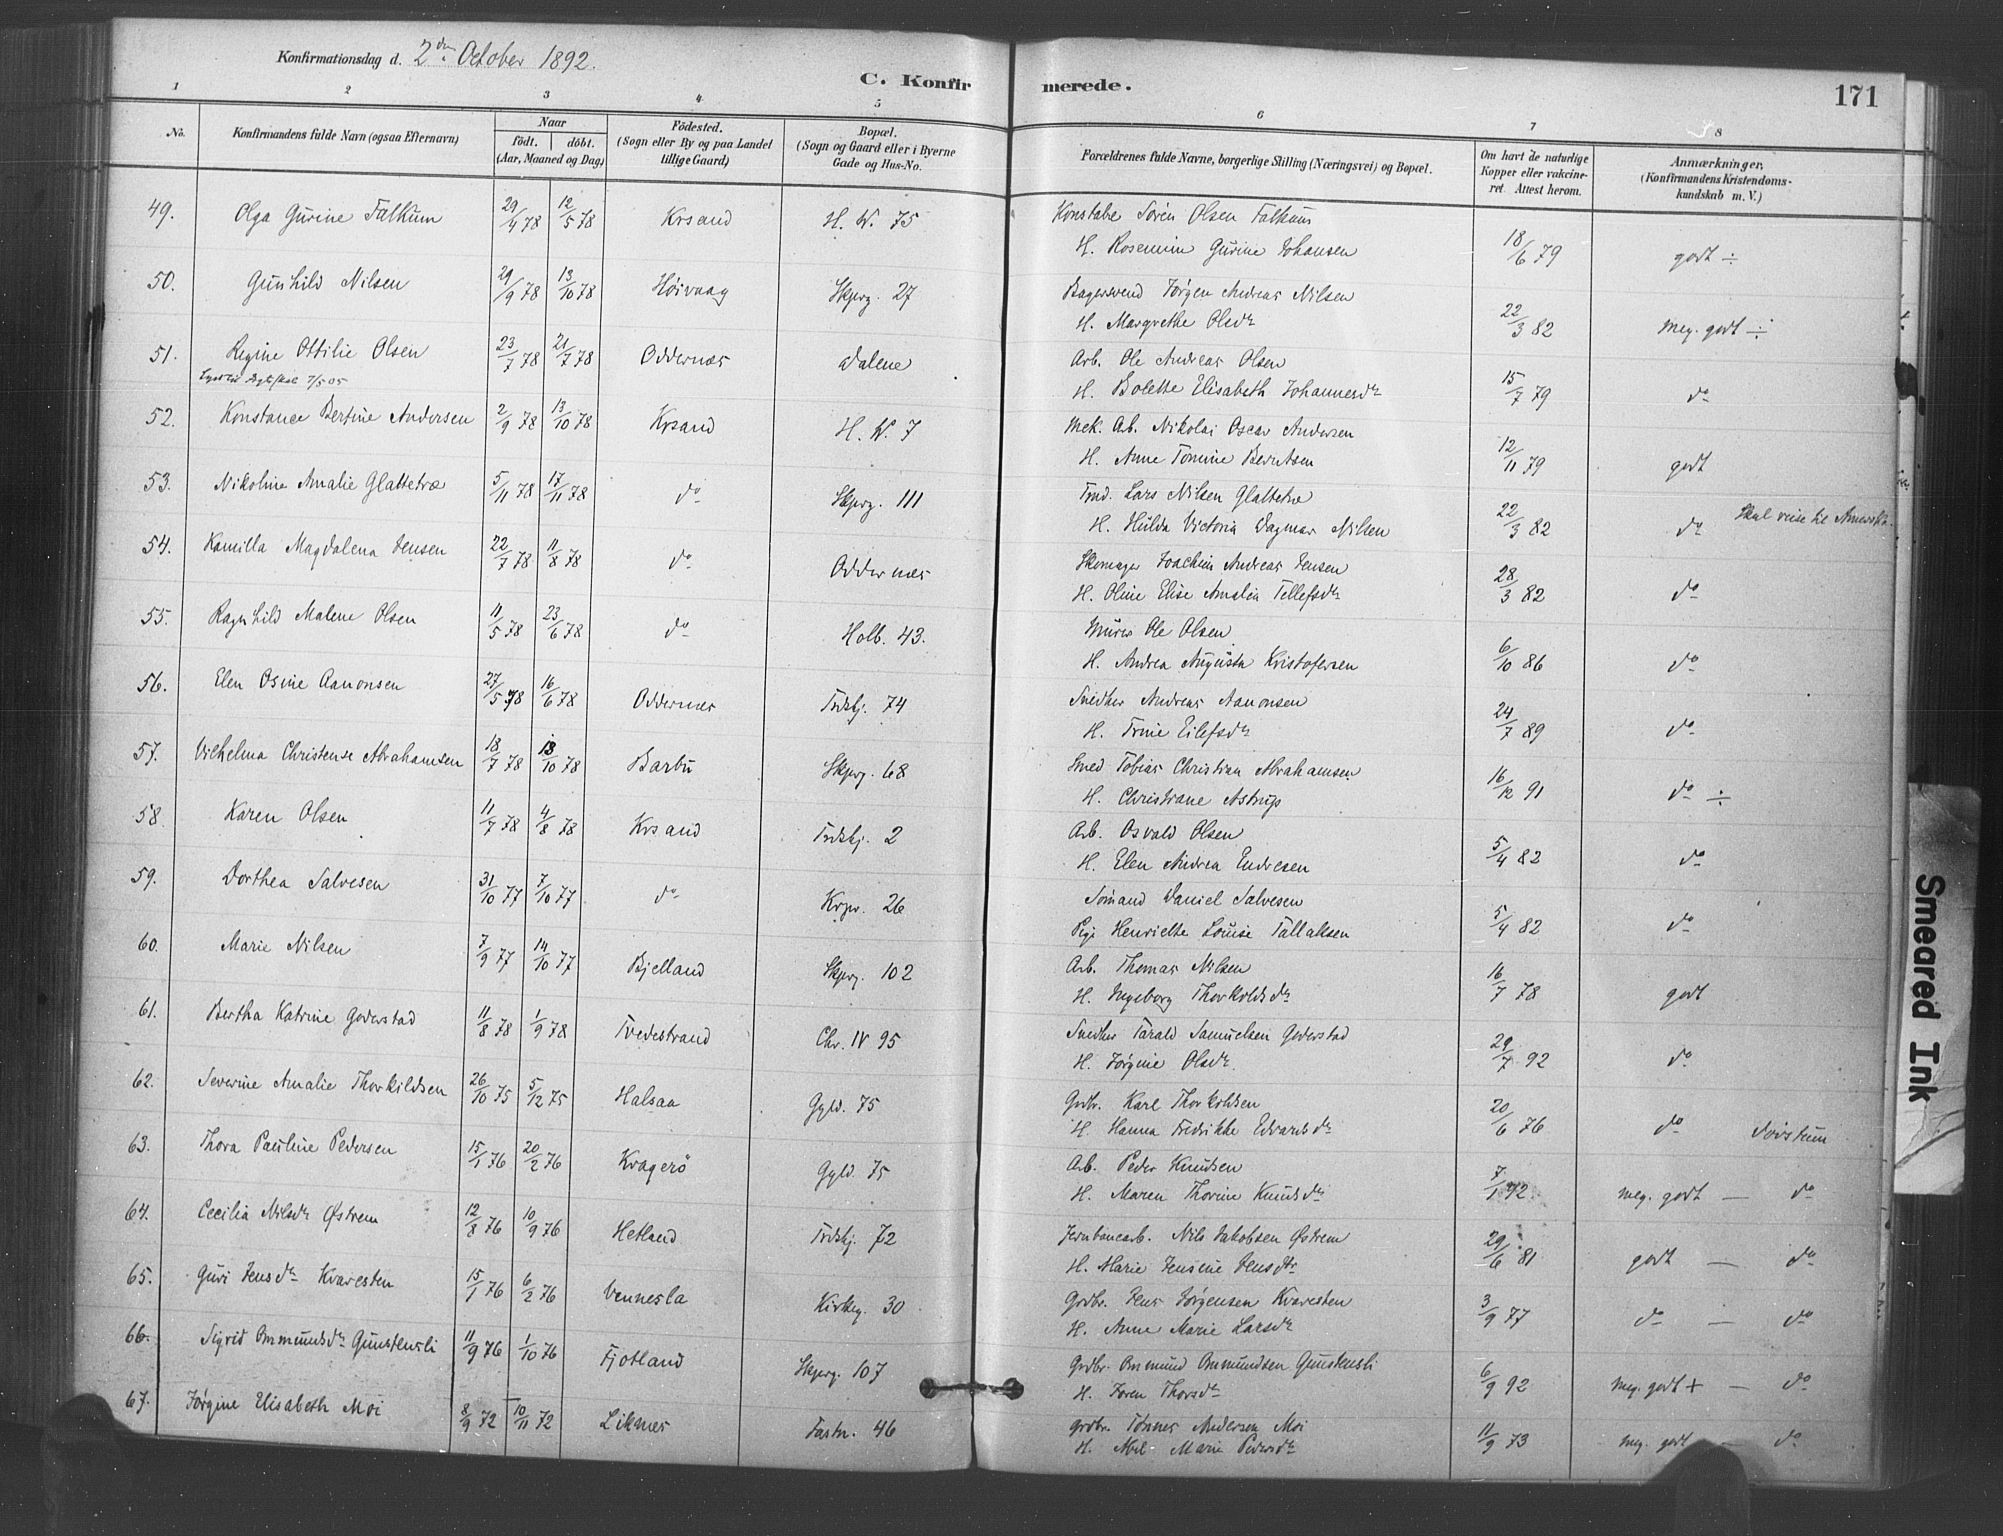 Konfirmationsdag d. 2den October 1892.
C. Konfirmerede.
171
1 2 3 4 5 6 7 8
No. Konfirmandens fulde Navn (ogsaa Efternavn) Naar födt. döbt. (Aar, Maaned og Dag) Födested. (Sogn eller By og paa Landet tillige Gaard) Bopæl. (Sogn og Gaard eller i Byerne Gade og Hus-No. Forældrenes fulde Navne, borgerlige Stilling (Næringsvei) og Bopæl. Om havt de naturlige Kopper eller vaccineret. Attest herom. Anmærkninger, (Konfirmandens Kristendomskundskab m. V.)
49. Olga Gurine Falkum 29/4 78 12/5 78 Krsand H. W. 75 Konstabe Sören Olsen Falkum
H. Rosemine Gurine Johansen 18/6 79 godt ÷
50. Gunhild Nilsen 29/9 78 13/10 78 Höivaag Skperg. 27 Bagersvend Jørgen Andreas Nilsen
H. Margrethe Olsdr 22/3 82 meg. godt ÷
51. Regine Ottilie Olsen 23/7 78 21/7 78 Oddernæs Dalene Arb. Ole Andreas Olsen
7/5 05 H. Bolette Elisabeth Johannesdr 15/7 79 do
52. Konstance Bertine Andersen 2/9 78 13/10 78 Krsand H. W. 7 Mek. Arb. Nikolai Oscar Andersen
H. Anne Tomine Berntsen 12/11 79 godt
53. Nikoline Amalie Glattetræ 5/11 78 17/11 78 do Skperg. 111 Lars Nilsen Glattetræ
H. Hulda Victoria Dagmar Nilsen 22/3 82 do Skal reise til Amerika.
54. Kamilla Magdalena Jensen 22/7 78 11/8 78 do Oddernæs Skomager Joachim Andreas Jensen
H. Oline Elise Amalia Tellefsdr 28/3 82 do
55. Ragnhild Malene Olsen 11/5 78 23/6 78 do Holb. 43. Murer Ole Olsen
H. Andrea Augusta Kristofersen 6/10 86 do
56. Elen Osine Aanonsen 27/5 78 16/6 78 Oddernæs Trdskj. 74 Snedker Andreas Aanonsen
H. Trine Eilefsdr 24/7 89 do
57. Vilhelma Christense Abrahamsen 18/7 78 13/10 78 Barbu Skperg. 68 Smed Tobias Christian Abrahamsen
H. Christiane Astrup 16/12 91 do ÷
58. Karen Olsen 11/7 78 4/8 78 Krsand Trdskj. 2 Arb. Osvald Olsen
H. Elen Andrea Endresen 5/4 82 do
59. Dorthea Salvesen 31/10 77 7/10 77 do 26 Sømand Daniel Salvesen
Pige Henriette Louise Tallaksen 5/4 82 do
60. Marie Nilsen 7/9 77 14/10 77 Bjelland Skperg. 102 Arb. Thomas Nilsen
H. Ingeborg Thorkildsdr 16/7 78 godt
61. Bertha Katrine Goderstad 11/8 78 1/9 78 Tvedestrand Chr. IV 95 Snedker Tarald Samuelsen Goderstad
H. Jørgine Olsdr. 29/7 92 do
62. Severine Amalie Thorkildsen 26/10 75 5/12 75 Halsaa Gyld. 75 Grdbr. Karl Thorkildsen
H. Hanna Fredrikke Edvardsdr 20/6 76 do
63. Thora Pauline Pedersen 15/1 76 20/2 76 Kragerø Gyld. 75 Arb. Peder Knudsen
H. Maren Thorine Knudsdr 7/1 92 meg. godt — do
64. Cecilia Nilsdr Østrem 12/8 76 10/9 76 Hetland Trdskj. 72 Jernbanearb. Nils Jakobsen Østrem
H. Marie Jensine Jensdtr 29/6 81 godt — do
65. Guri Jensdr Kvaresten 15/1 76 6/2 76 Vennesla Kirkeg. 30 Grdbr. Jens Jørgensen Kvaresten
H. Anne Marie Larsdr 3/9 77 do — do
66. Sigrid Ommundsdr Gunstensli 11/9 76 1/10 76 Fjotland Skperg. 107 Grdbr. Ommund Ommundsen Gunstensli
H. Thorsdr 6/9 92 meg. godt + — do
67. Jørgine Elisabeth Moi 8/9 72 10/11 72 Liknæs Fastn. 46 Grdbr. Tønnes Andersen Moi
H. Abel Marie Pedersdr 11/9 73 meg. godt — do
Smeared Ink